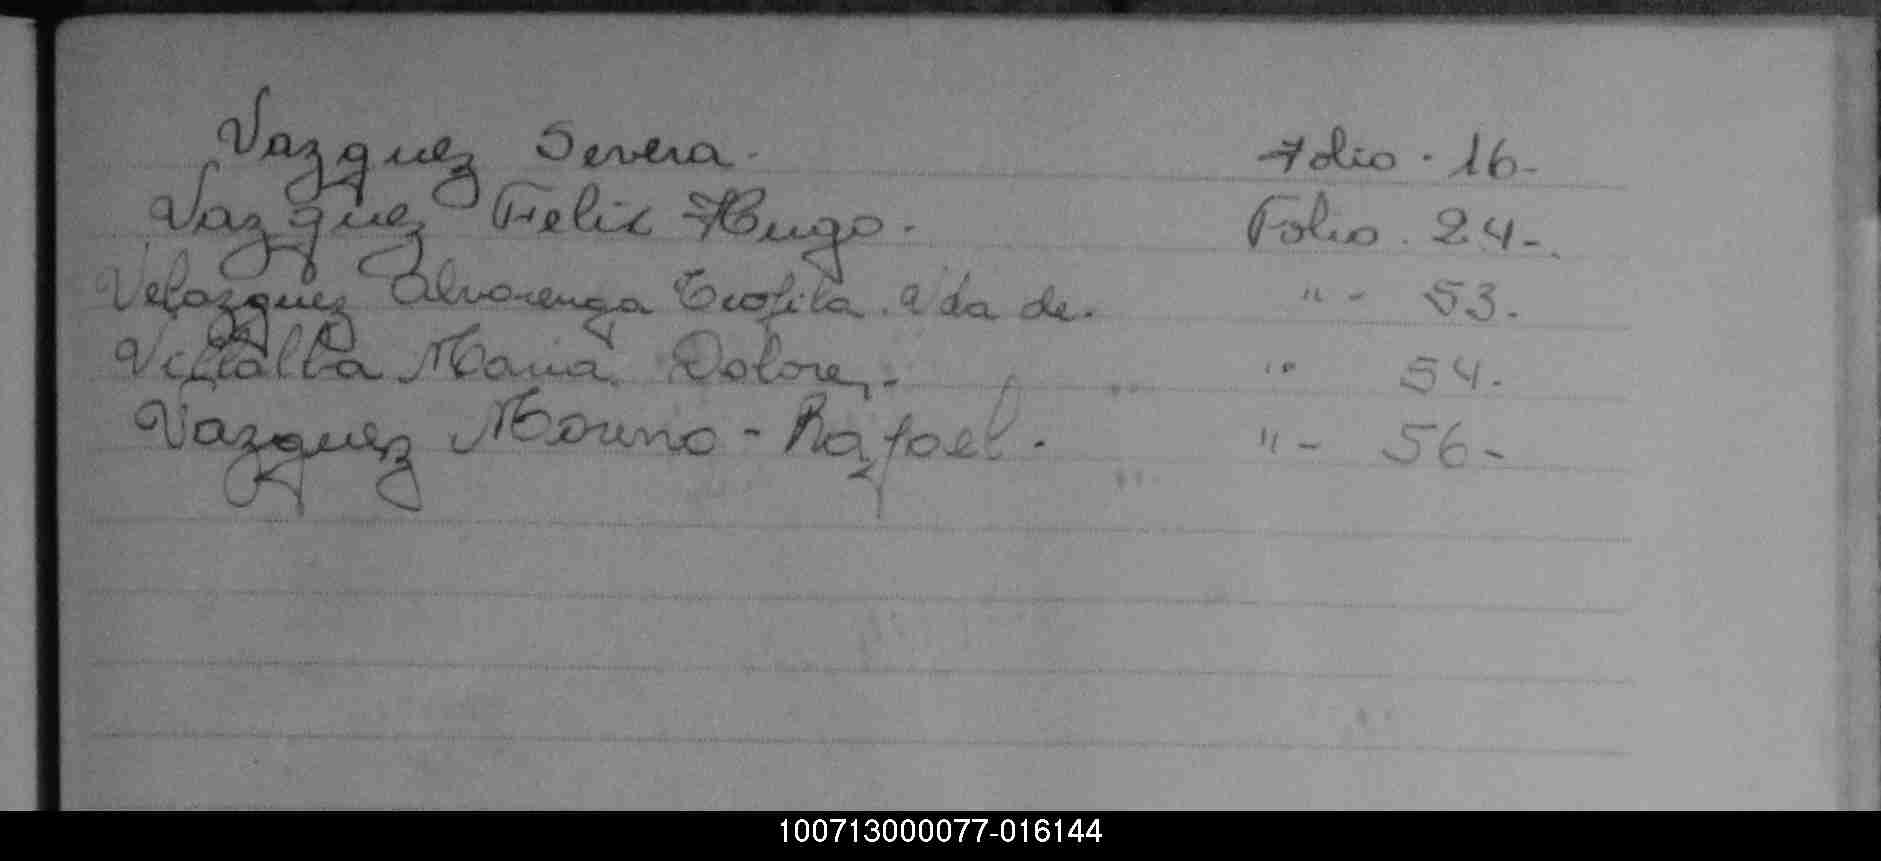 Vazquez Severa. Folio. 16-
Vazquez Felix Hugo. Folio. 24-.
Velazquez Alvarenga Teofila. Vda de. " - 53.
Villalba Maria Dolores. " 54.
Vazquez Moreno - Rafael. " - 56-
100713000077-016144